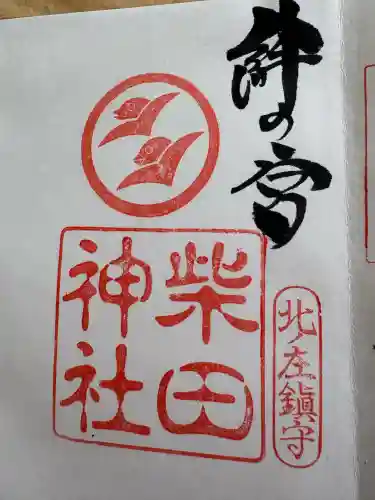 絣の宮
柴田
神社
北ノ庄鎮守